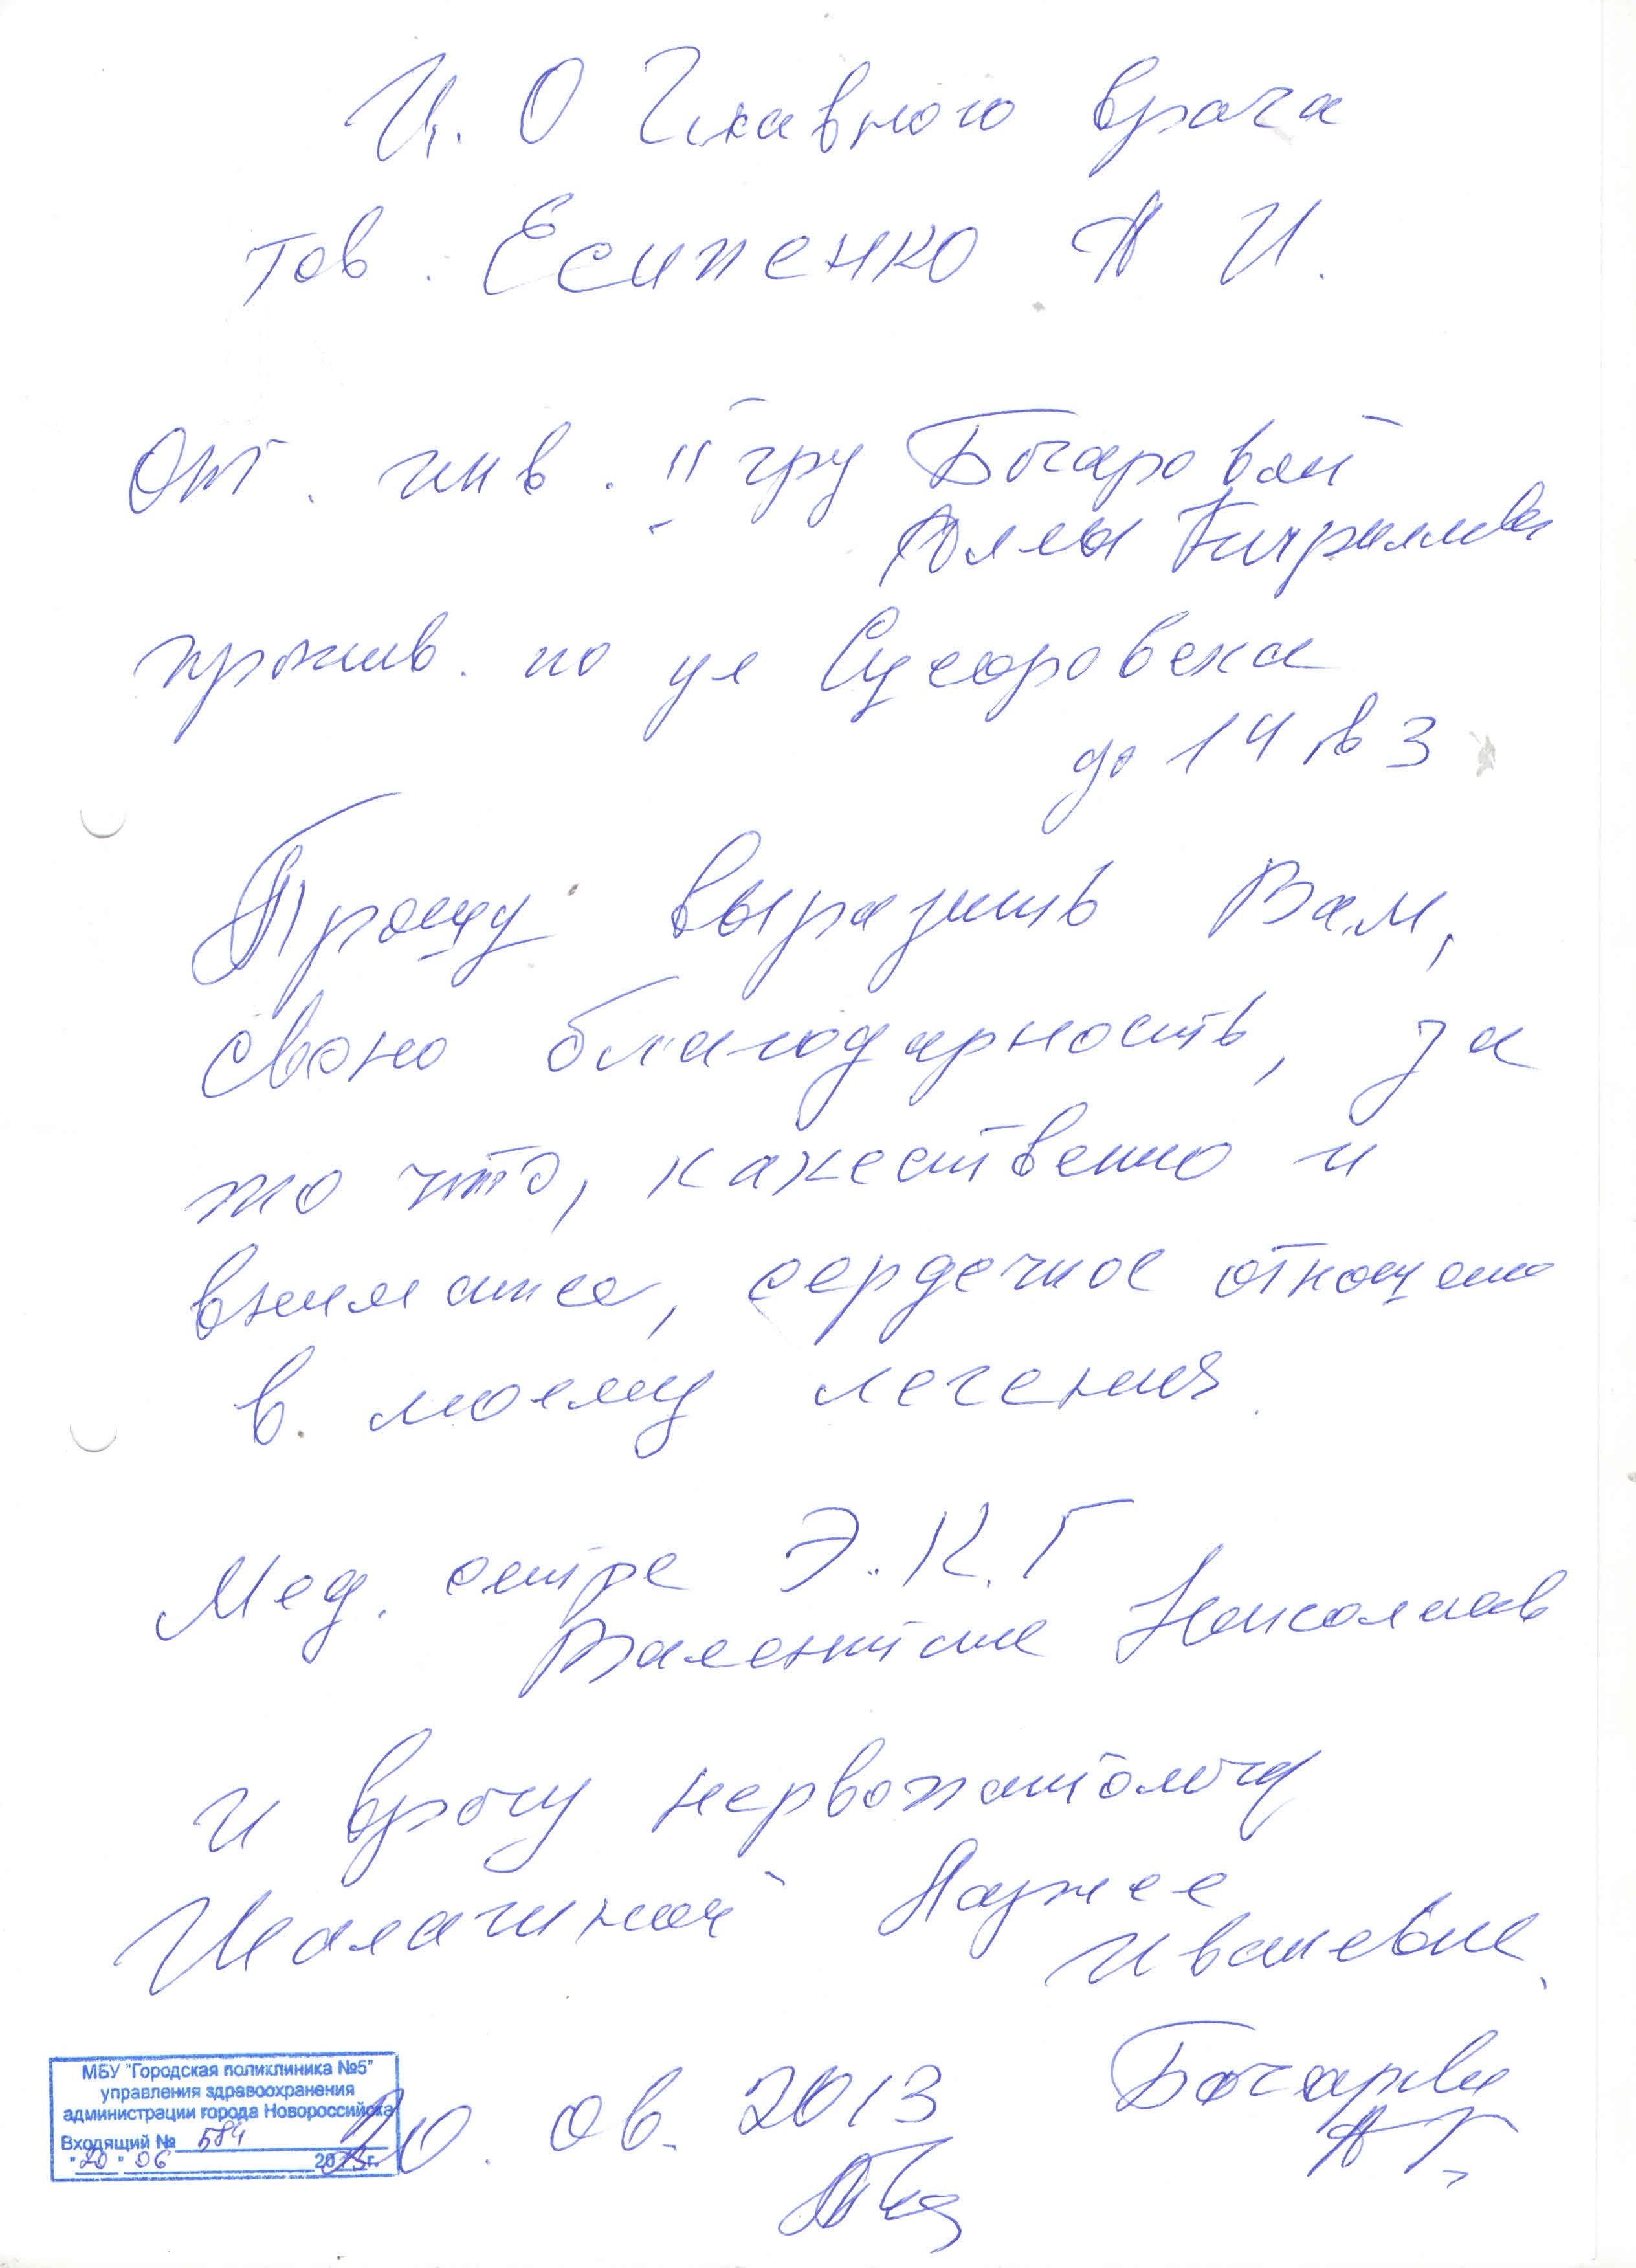 И. О Главного врача
тов. Есипенко А И.
от. инв. II гру Бочаровой
Аллы
прожив. по ул
до 14 кв 3
Прошу выразить Вам,
свою благодарность, за
то что, качественно и
внимание, сердечное отношение
в. моему лечения.
Мед. сестре Э.К.Г
Валентине Николаев
и врачу нервопатологу
Шалагиной
Ивановне.
20. 06. 2013 Бочарова
МБУ "Городская поликлиника №5"
управления здравоохранения
администрации города Новороссийска
Входящий № 584
"20" 06 2013г.